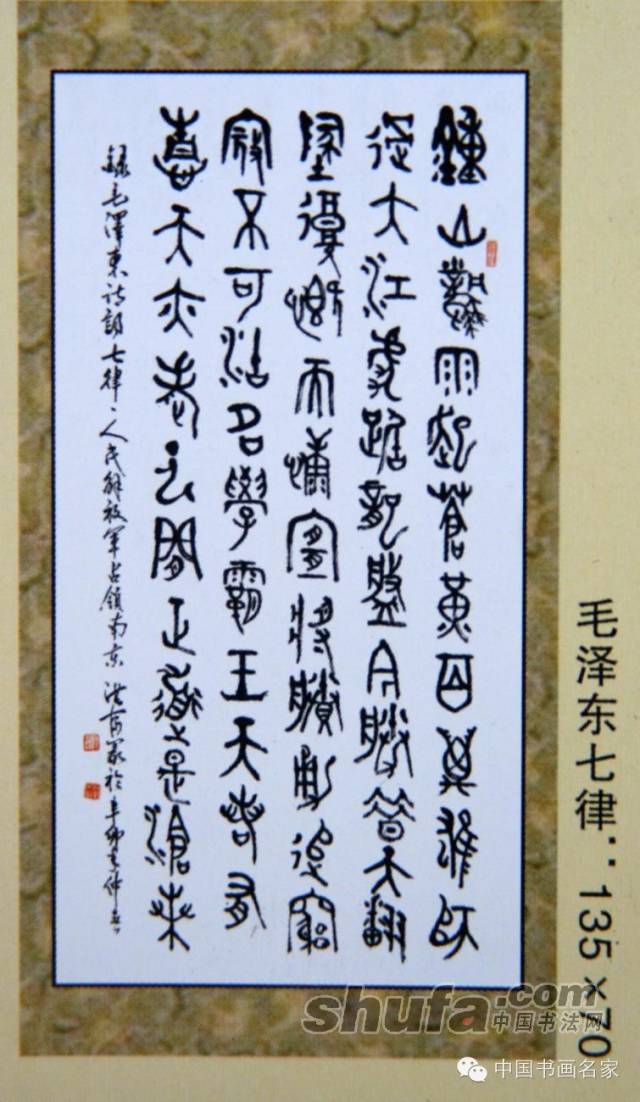 鐘山風雨起蒼黃百萬雄師
過大江虎踞龍盤今勝昔天翻
地覆慨而慷宜將賸勇追窮
寇不可沽名學霸王天若有
情天亦老人間正道是滄桑
錄毛澤東詩詞七律、人民解放軍占領南京 於辛卯年仲春
毛泽东七律：135×70
shufa.com
中国书法网
中国书画名家